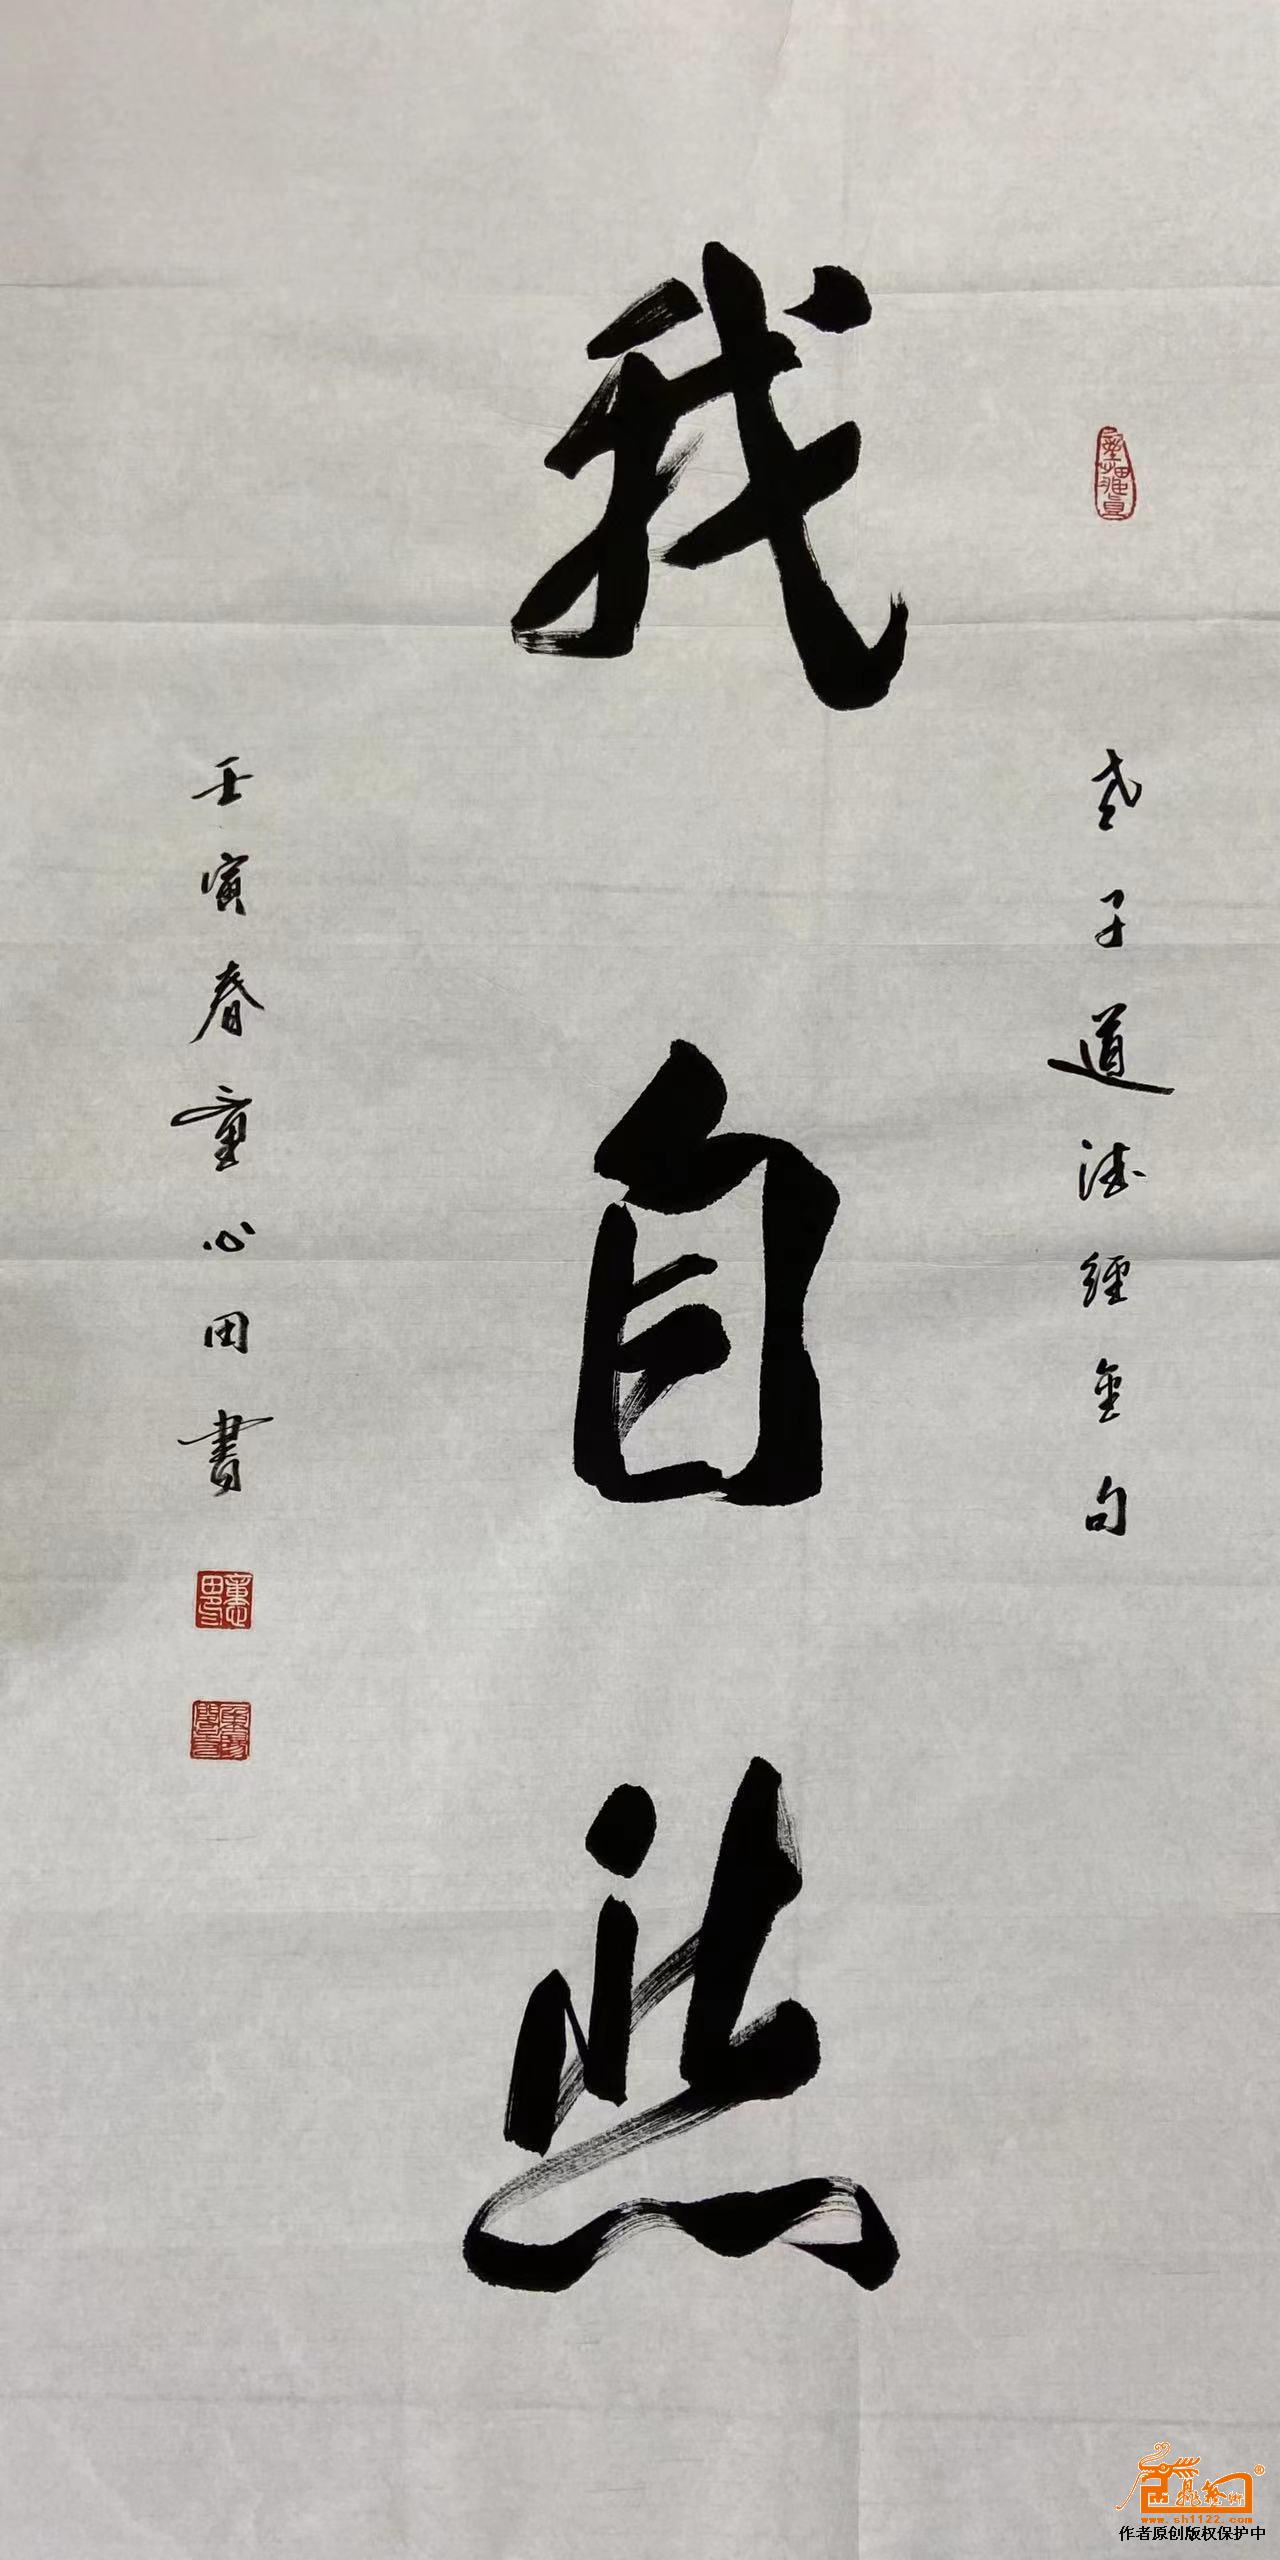 老子道德经金句
我自然
壬寅春童心田書
www.sh1122.com
作者原创版权保护中